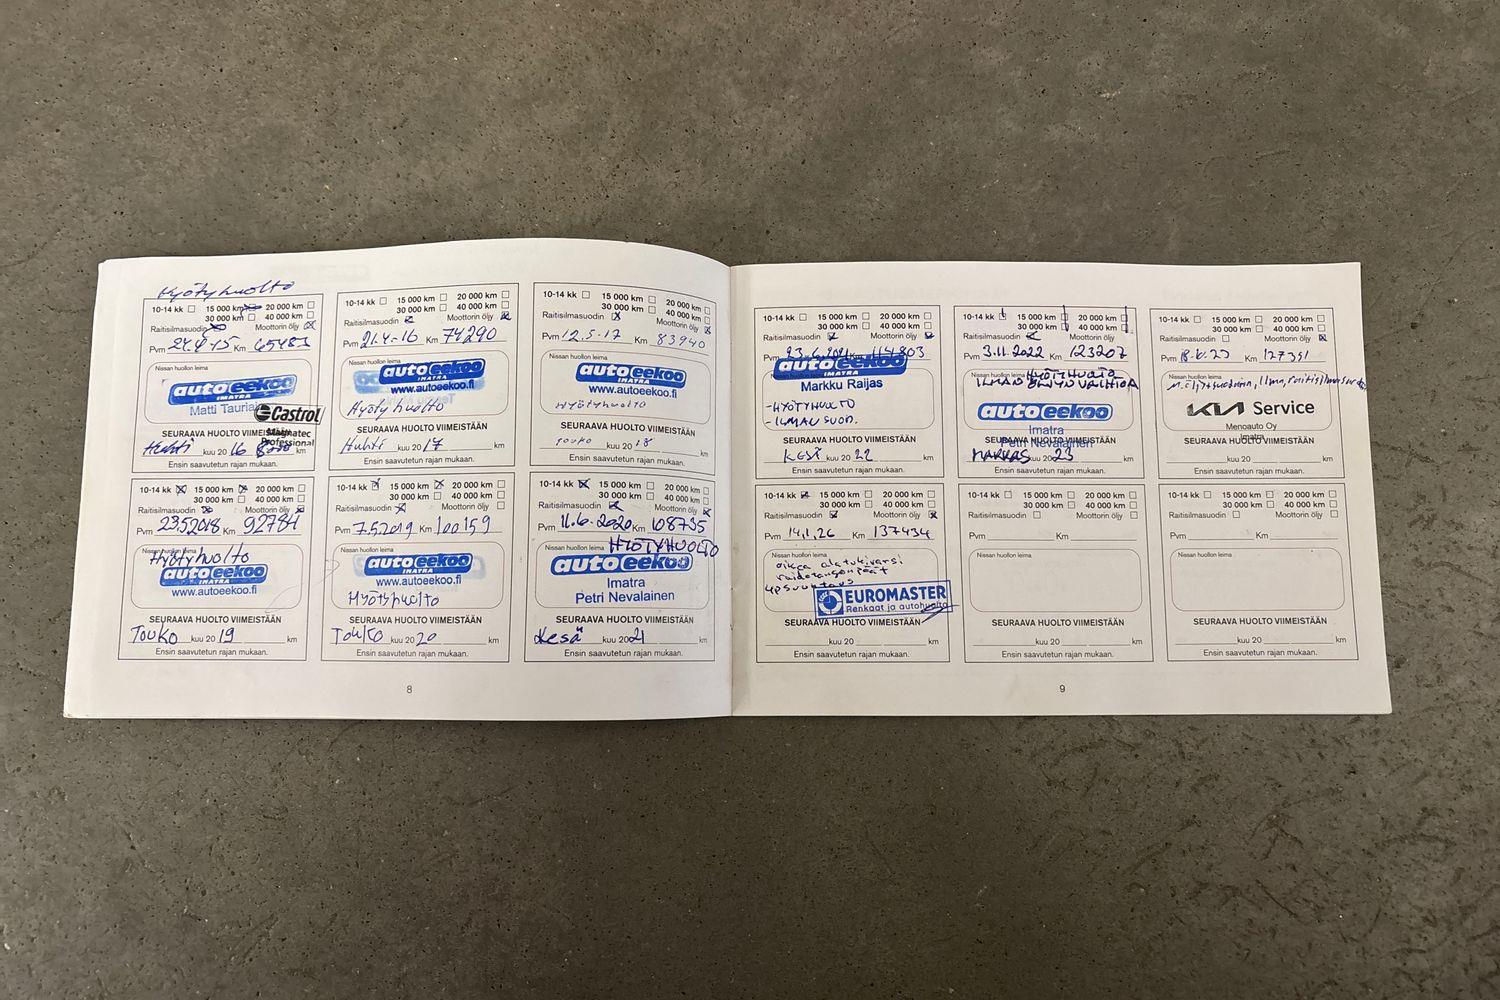 Hyötyhuolto
10-14 kk 15 000 km 20 000 km
30 000 km 40 000 km
Raitisilmasuodin Moottorin öljy
Pvm 24.4-15 Km 65483
Nissan huollon leima
autoeekoo
IMATRA
Matti Tauriai
Castrol
Magnatec
Professional
SEURAAVA HUOLTO VIIMEISTÄÄN
Huhti kuu 20 16 km
Ensin saavutetun rajan mukaan.
10-14 kk 15 000 km 20 000 km
30 000 km 40 000 km
Raitisilmasuodin Moottorin öljy
Pvm 21.4-16 Km 74290
Nissan huollon leima
autoeekoo
IMATRA
www.autoeekoo.fi
Hyötyhuolto
SEURAAVA HUOLTO VIIMEISTÄÄN
Huhti kuu 20 17 km
Ensin saavutetun rajan mukaan.
10-14 kk 15 000 km 20 000 km
30 000 km 40 000 km
Raitisilmasuodin Moottorin öljy
Pvm 12.5-17 Km 83940
Nissan huollon leima
autoeekoo
IMATRA
www.autoeekoo.fi
Hyötyhuolto
SEURAAVA HUOLTO VIIMEISTÄÄN
Touko kuu 20 18 km
Ensin saavutetun rajan mukaan.
10-14 kk 15 000 km 20 000 km
30 000 km 40 000 km
Raitisilmasuodin Moottorin öljy
Pvm 23.5.2018 Km 92784
Nissan huollon leima
Hyötyhuolto
autoeekoo
IMATRA
www.autoeekoo.fi
SEURAAVA HUOLTO VIIMEISTÄÄN
Touko kuu 20 19 km
Ensin saavutetun rajan mukaan.
10-14 kk 15 000 km 20 000 km
30 000 km 40 000 km
Raitisilmasuodin Moottorin öljy
Pvm 7.5.2019 Km 100159
Nissan huollon leima
autoeekoo
IMATRA
www.autoeekoo.fi
Hyötyhuolto
SEURAAVA HUOLTO VIIMEISTÄÄN
Touko kuu 20 20 km
Ensin saavutetun rajan mukaan.
10-14 kk 15 000 km 20 000 km
30 000 km 40 000 km
Raitisilmasuodin Moottorin öljy
Pvm 11.6.2020 Km 108735
Nissan huollon leima HYÖTYHUOLTO
autoeekoo
Imatra
Petri Nevalainen
SEURAAVA HUOLTO VIIMEISTÄÄN
Kesä kuu 20 21 km
Ensin saavutetun rajan mukaan.
8
10-14 kk 15 000 km 20 000 km
30 000 km 40 000 km
Raitisilmasuodin Moottorin öljy
Pvm 23.6.2021 Km 114803
autoeekoo
IMATRA
Markku Raijas
-HYÖTYHUOLTO
-ILMANSUOD.
SEURAAVA HUOLTO VIIMEISTÄÄN
KESÄ kuu 20 22 km
Ensin saavutetun rajan mukaan.
10-14 kk 15 000 km 20 000 km
30 000 km 40 000 km
Raitisilmasuodin Moottorin öljy
Pvm 3.11.2022 Km 123207
Nissan huollon leima HYÖTYHUOLTO
ILMAN ÖLJYNVAIHTOA
autoeekoo
Imatra
Petri Nevalainen
SEURAAVA HUOLTO VIIMEISTÄÄN
MARRAS kuu 20 23 km
Ensin saavutetun rajan mukaan.
10-14 kk 15 000 km 20 000 km
30 000 km 40 000 km
Raitisilmasuodin Moottorin öljy
Pvm Km 127351
Nissan huollon leima
KIA Service
Menoauto Oy
Imatra
SEURAAVA HUOLTO VIIMEISTÄÄN
kuu 20 km
Ensin saavutetun rajan mukaan.
10-14 kk 15 000 km 20 000 km
30 000 km 40 000 km
Raitisilmasuodin Moottorin öljy
Pvm 14.1.26 Km 137434
Nissan huollon leima
oikea alatukivarsi
raidetangonpäät
EUROMASTER
Renkaat ja autohuolto
SEURAAVA HUOLTO VIIMEISTÄÄN
kuu 20 km
Ensin saavutetun rajan mukaan.
10-14 kk 15 000 km 20 000 km
30 000 km 40 000 km
Raitisilmasuodin Moottorin öljy
Pvm Km
Nissan huollon leima
SEURAAVA HUOLTO VIIMEISTÄÄN
kuu 20 km
Ensin saavutetun rajan mukaan.
10-14 kk 15 000 km 20 000 km
30 000 km 40 000 km
Raitisilmasuodin Moottorin öljy
Pvm Km
Nissan huollon leima
SEURAAVA HUOLTO VIIMEISTÄÄN
kuu 20 km
Ensin saavutetun rajan mukaan.
9